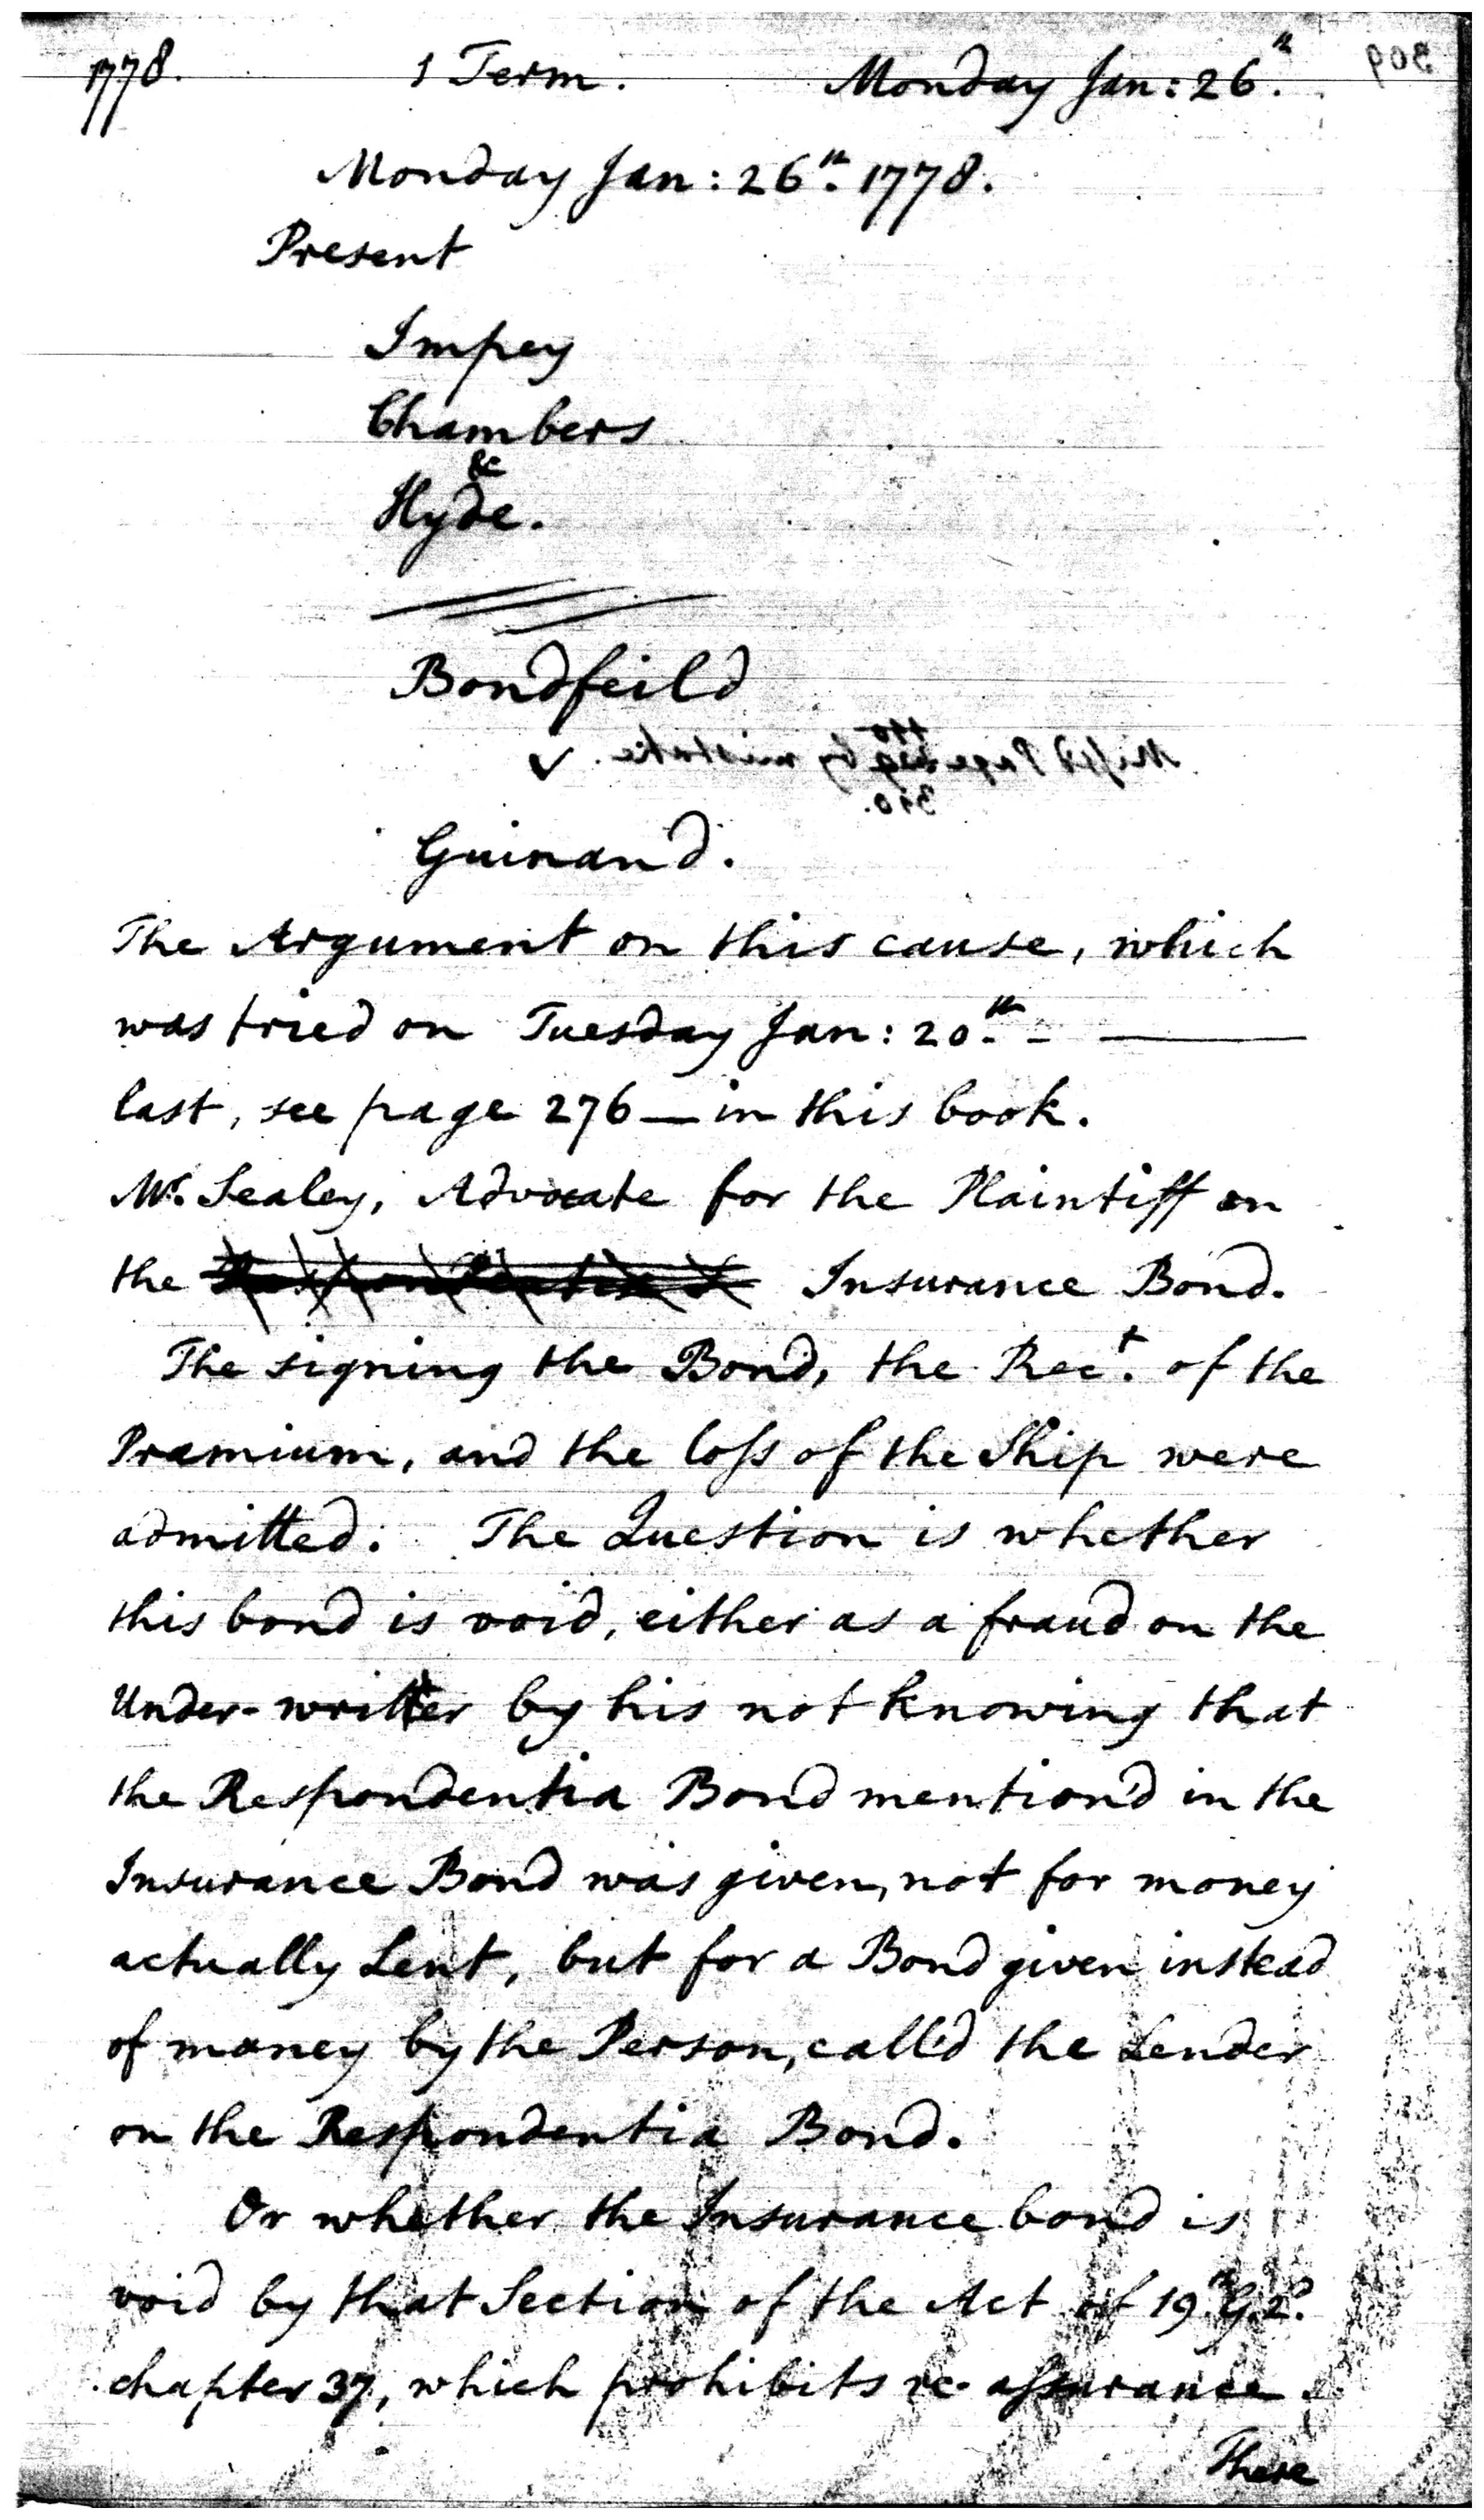 1778. 1 Term. Monday Jan: 26.th
Monday Jan: 26.th 1778.
Present
Impey
Chambers
&
Hyde.
Bondfeild
v
Guinand.
The Argument on this cause, which
was tried on Tuesday Jan: 20.th - ———
last, see page 276 — in this book.
Mr. Sealey, Advocate for the Plaintiff on
the Insurance Bond.
The signing the Bond, the Rec.t of the
Præmium, and the loss of the Ship were
admitted. The Question is whether
this bond is void, either as a fraud on the
Under-writer by his not knowing that
the Respondentia Bond mention'd in the
Insurance Bond was given, not for money
actually Lent, but for a Bond given instead
of money by the Person, call'd the Lender
on the Respondentia Bond.
Or whether the Insurance bond is
void by that Section of the Act of 19.th G. 2.d
chapter 37, which prohibits re-assurance.
There